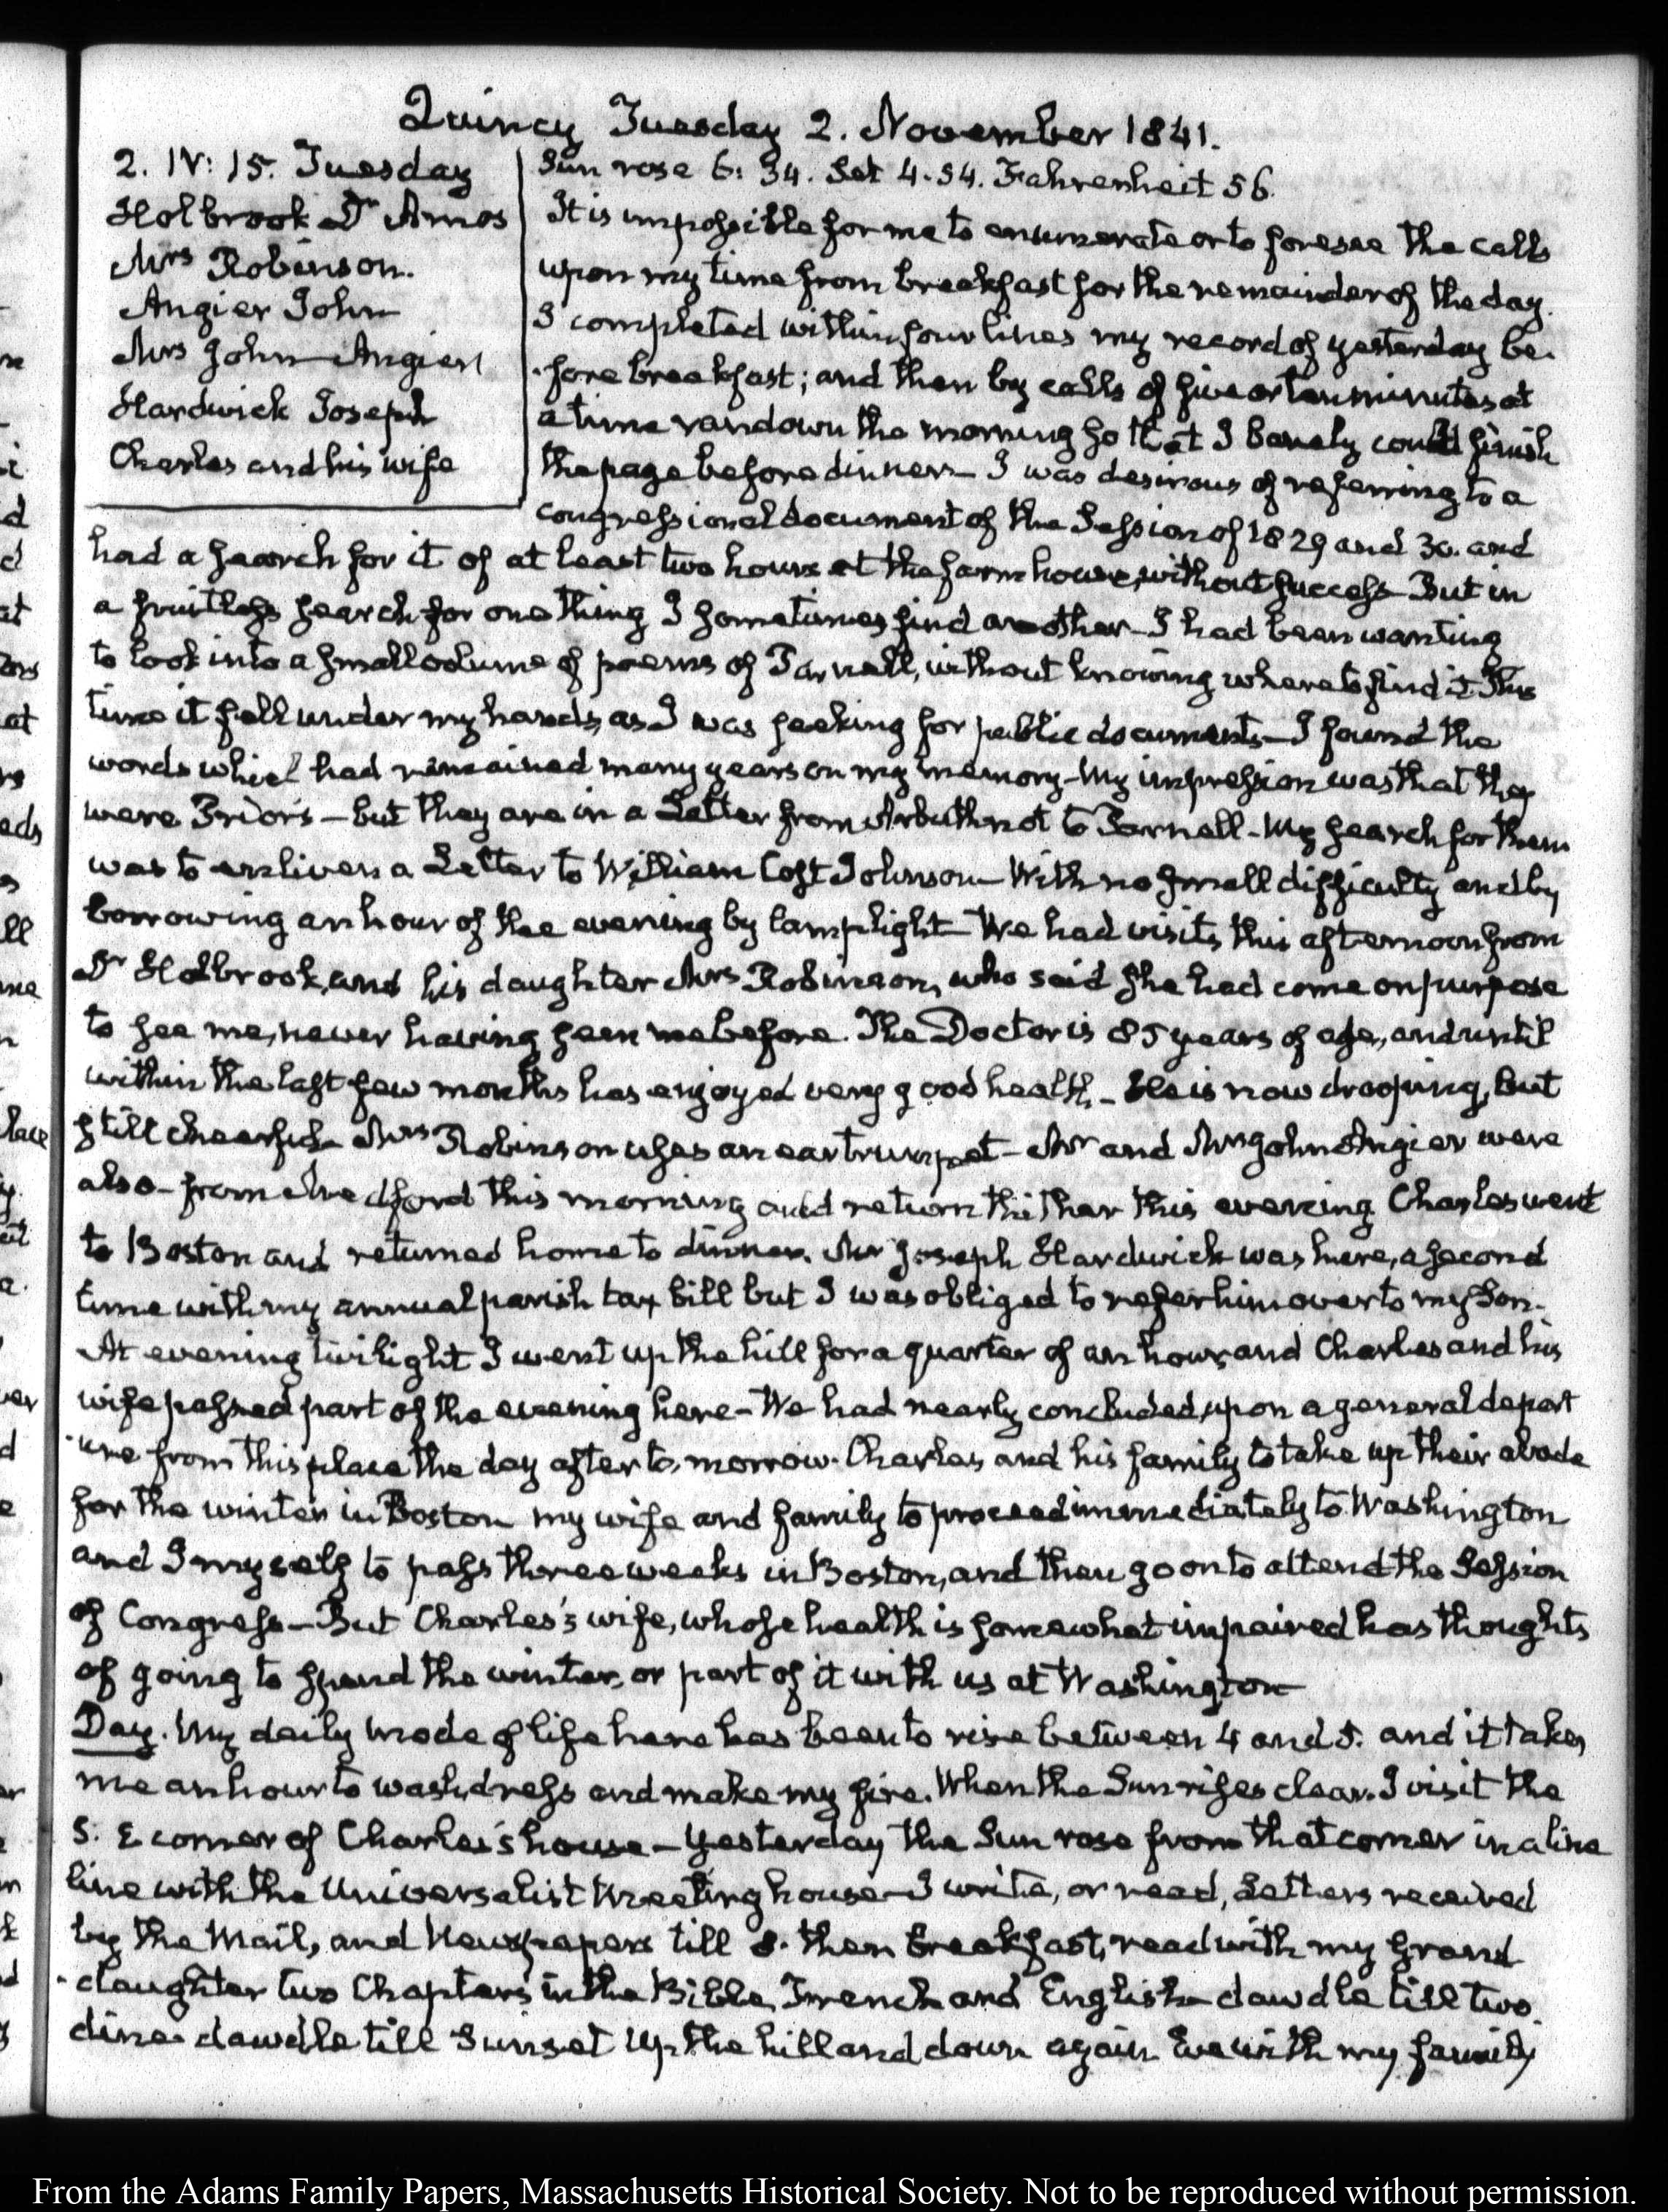 Quincy Tuesday 2. November 1841.
2. IV: 15. Tuesday
Holbrook Dr Amos
Mrs Robinson.
Angier John
Mrs John Angier
Hardwick Joseph
Charles and his wife
Sun rose 6: 34. Set 4. 54. Fahrenheit 56.
It is impossible for me to enumerate or to foresee the calls
upon my time from breakfast for the remainder of the day.
I completed within four lines my record of yesterday be-
-fore breakfast; and then by calls of five or ten minutes at
a time ran down the morning so that I barely could finish
the page before dinner— I was desirous of referring to a
congressional document of the Session of 1829 and 30. and
had a search for it of at least two hours at the farm house, without success— But in
a fruitless search for one thing I sometimes find another— I had been wanting
to look into a small volume of poems of Parnell, without knowing where to find it This
time it fell under my hands, as I was seeking for public documents— I found the
words which had remained many years on my memory— My impression was that they
were Prior's — but they are in a Letter from Arbuthnot to Parnell— My search for them
was to enliven a Letter to William Cost Johnson— With no small difficulty and by
borrowing an hour of the evening by lamplight— We had visits this afternoon from
Dr Holbrook, and his daughter Mrs Robinson, who said she had come on purpose
to see me, never having seen me before. The Doctor is 85 years of age, and until
within the last few months has enjoyed very good health— He is now drooping, but
still cheerful— Mrs Robinson uses an ear trumpet— Mr and Mrs John Angier were
also— from Medford this morning and return thither this evening Charles went
to Boston and returned home to dinner. Mr Joseph Hardwick was here, a second
time with my annual parish tax bill but I was obliged to refer him over to my Son.
At evening twilight I went up the hill for a quarter of an hour, and Charles and his
wife passed part of the evening here— We had nearly concluded upon a general depart
-ure from this place the day after to-morrow. Charles and his family to take up their abode
for the winter in Boston my wife and family to proceed immediately to Washington
and I myself to pass three weeks in Boston, and then go on to attend the Session
of Congress— But Charles's wife, whose health is somewhat impaired has thoughts
of going to spend the winter, or part of it with us at Washington—
Day. My daily mode of life here has been to rise between 4 and 5. and it takes
me an hour to wash, dress and make my fire. When the Sun rises clear. I visit the
S. E corner of Charles's house— Yesterday the Sun rose from that corner in a line
line with the Universalist Meeting house— I write, or read, Letters received
by the Mail, and Newspapers till 8. then breakfast, read with my grand
-daughter two Chapters in the Bible, French and English— dawdle till two.
dine— dawdle till Sunset Up the hill and down again Eve with my family
From the Adams Family Papers, Massachusetts Historical Society. Not to be reproduced without permission.